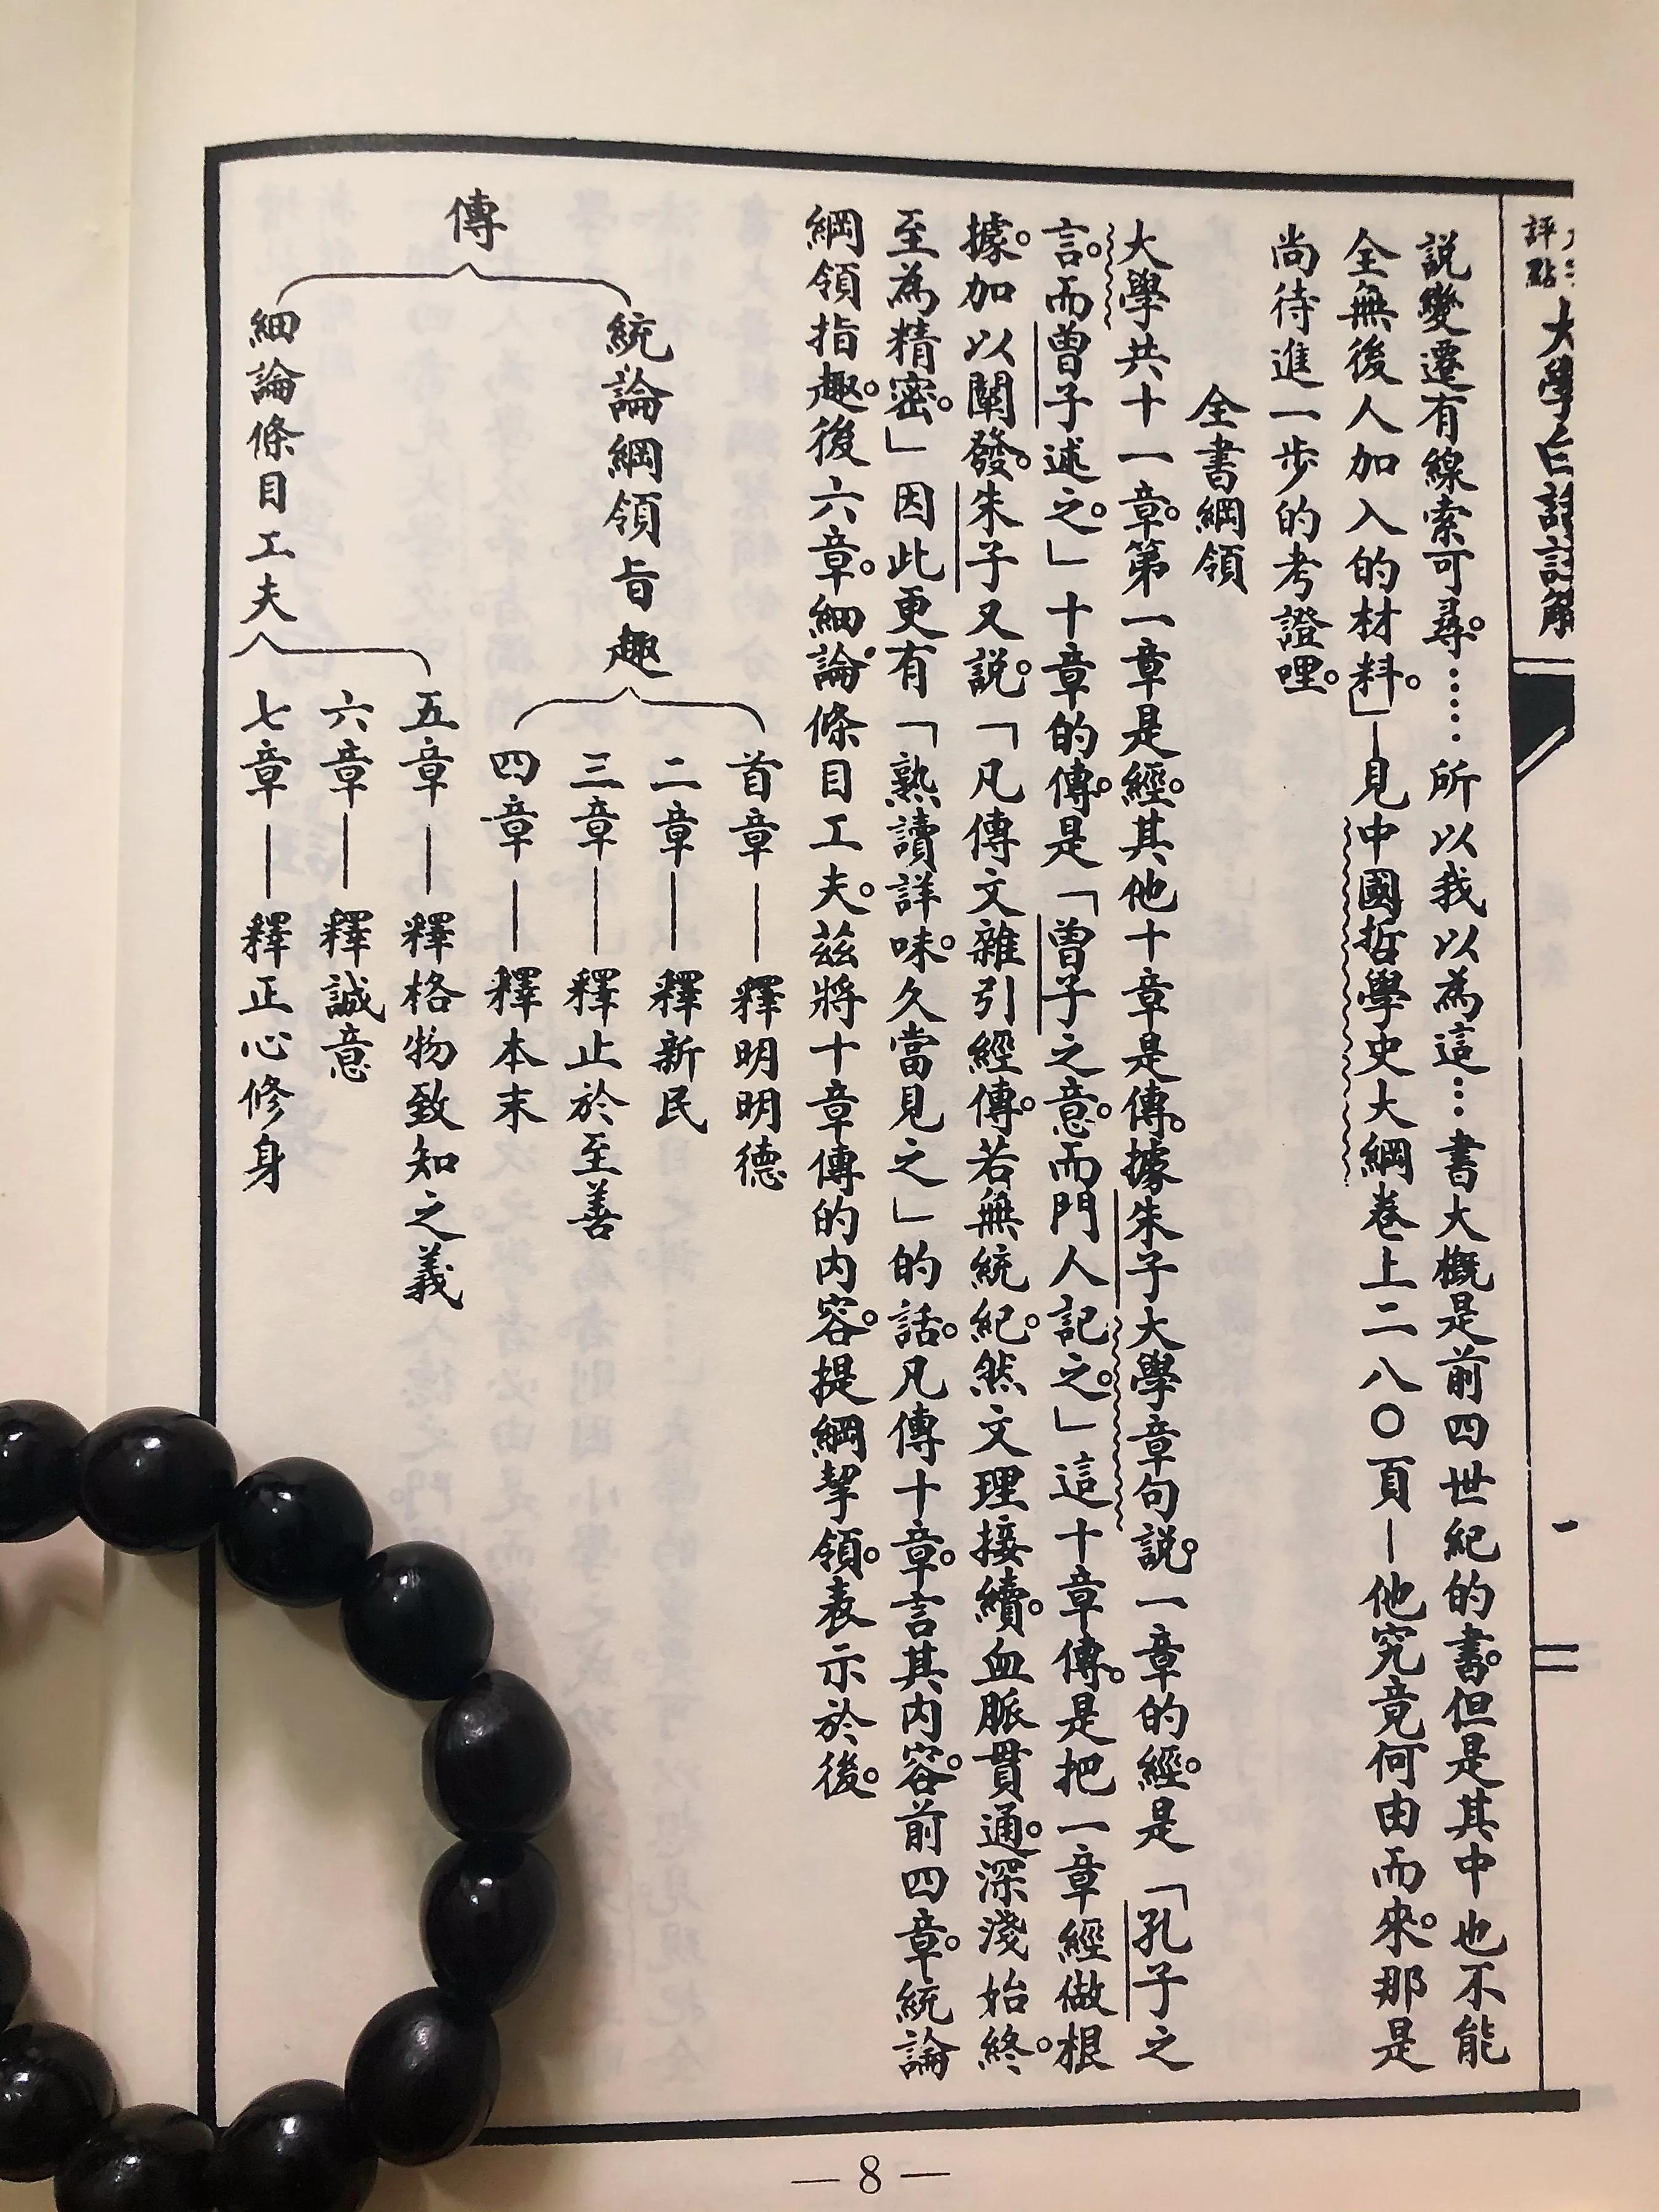 評點
大學白話註解
一
說變遷有線索可尋。……所以我以為這…書大概是前四世紀的書。但是其中也不能
全無後人加入的材料。」—見中國哲學史大綱卷上二八〇頁—他究竟何由而來。那是
尚待進一步的考證哩。
全書綱領
大學共十一章。第一章是經。其他十章是傳。據朱子大學章句說。一章的經。是「孔子之
言。而曾子述之。」十章的傳。是「曾子之意。而門人記之。」這十章傳。是把一章經做根
據。加以闡發。朱子又說。「凡傳文雜引經傳。若無統紀。然文理接續。血脈貫通。深淺始終。
至為精密。」因此更有「熟讀詳味。久當見之」的話。凡傳十章。言其內容。前四章。統論
綱領指趣。後六章。細論條目工夫。茲將十章傳的內容。提綱挈領。表示於後。
傳
統論綱領旨趣
首章——釋明明德
二章——釋新民
三章——釋止於至善
四章——釋本末
細論條目工夫
五章——釋格物致知之義
六章——釋誠意
七章——釋正心修身
— 8 —